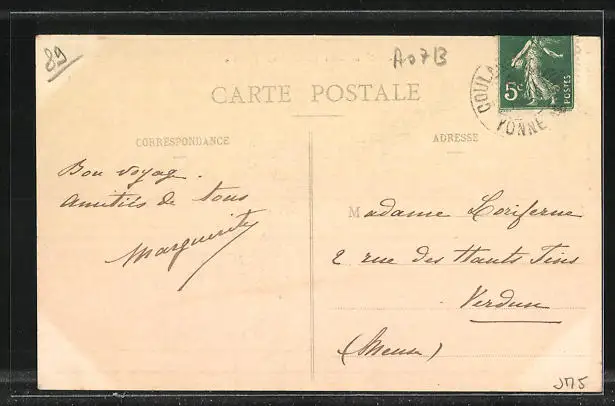 89
A07B
CARTE POSTALE
5c
POSTES
COULA
YONNE
CORRESPONDANCE
ADRESSE
Bon voyage.
Amitiés de tous
Marguerite
Madame Loriferne
2 rue des Hauts Fins
Verdun
(Meuse)